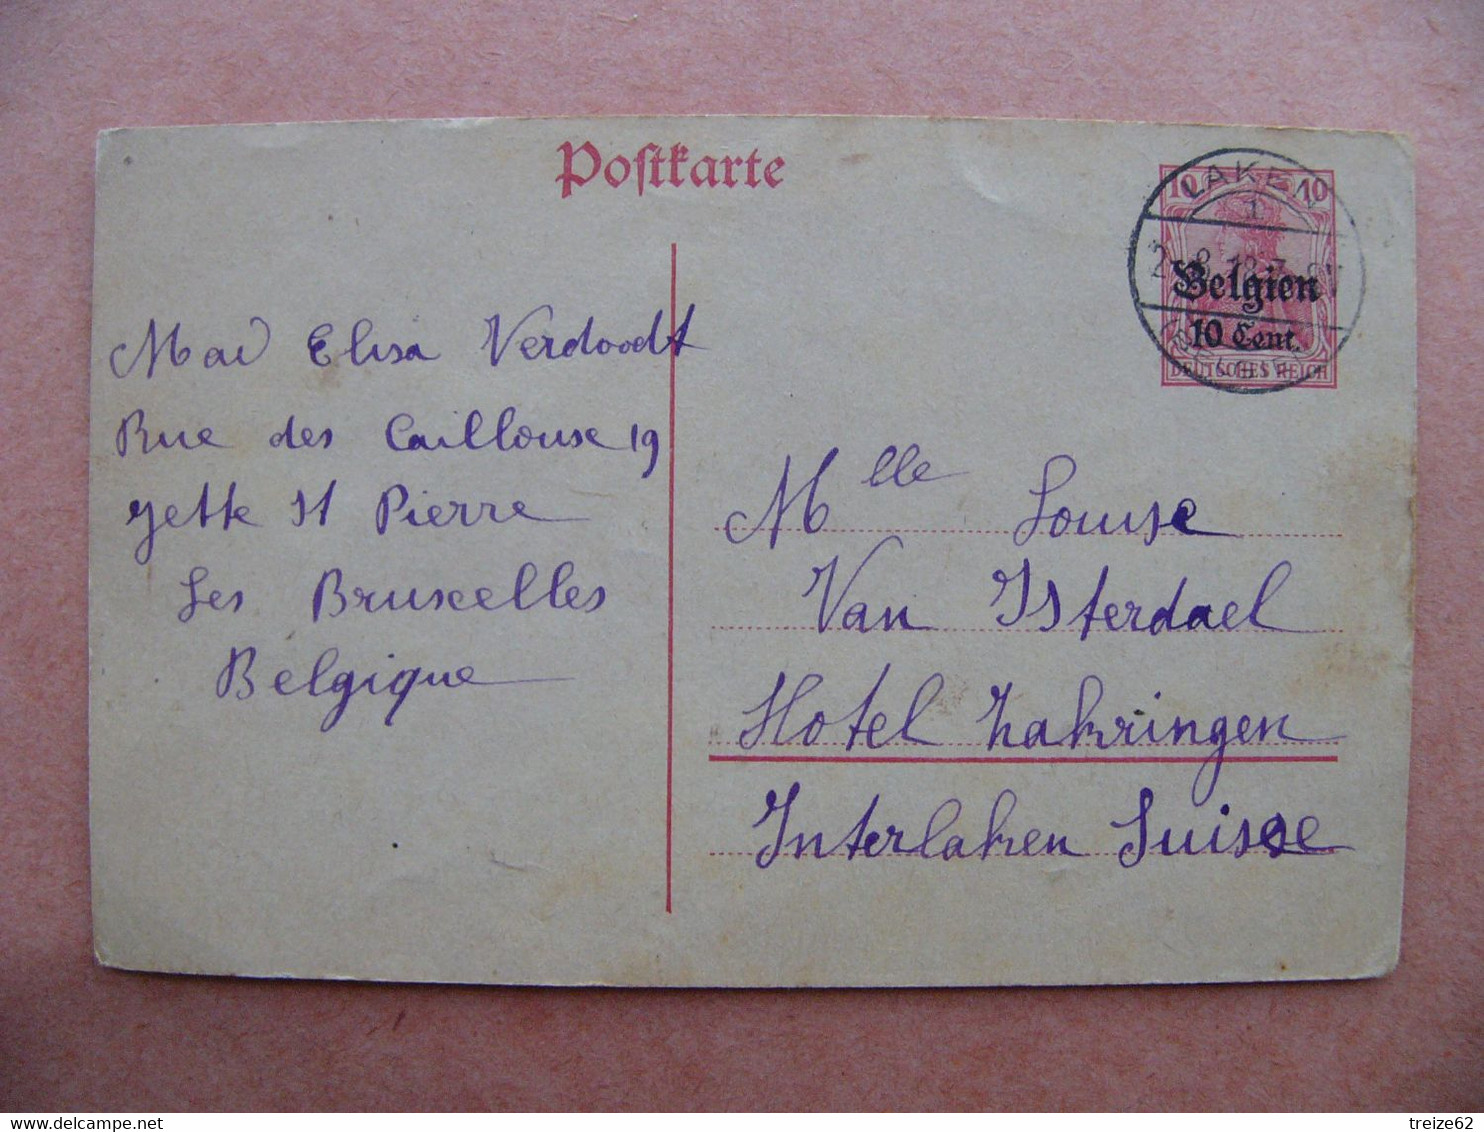 Postkarte
10 10
LAKEN
1
Belgien
10 Cent.
DEUTSCHES REICH
Mad Elisa Verdoodt
Rue des Caillouse 19
Jette St Pierre
Les Bruxelles
Belgique
Mlle Louise
Van Isterdael
Hotel
Interlaken Suisse
treize62